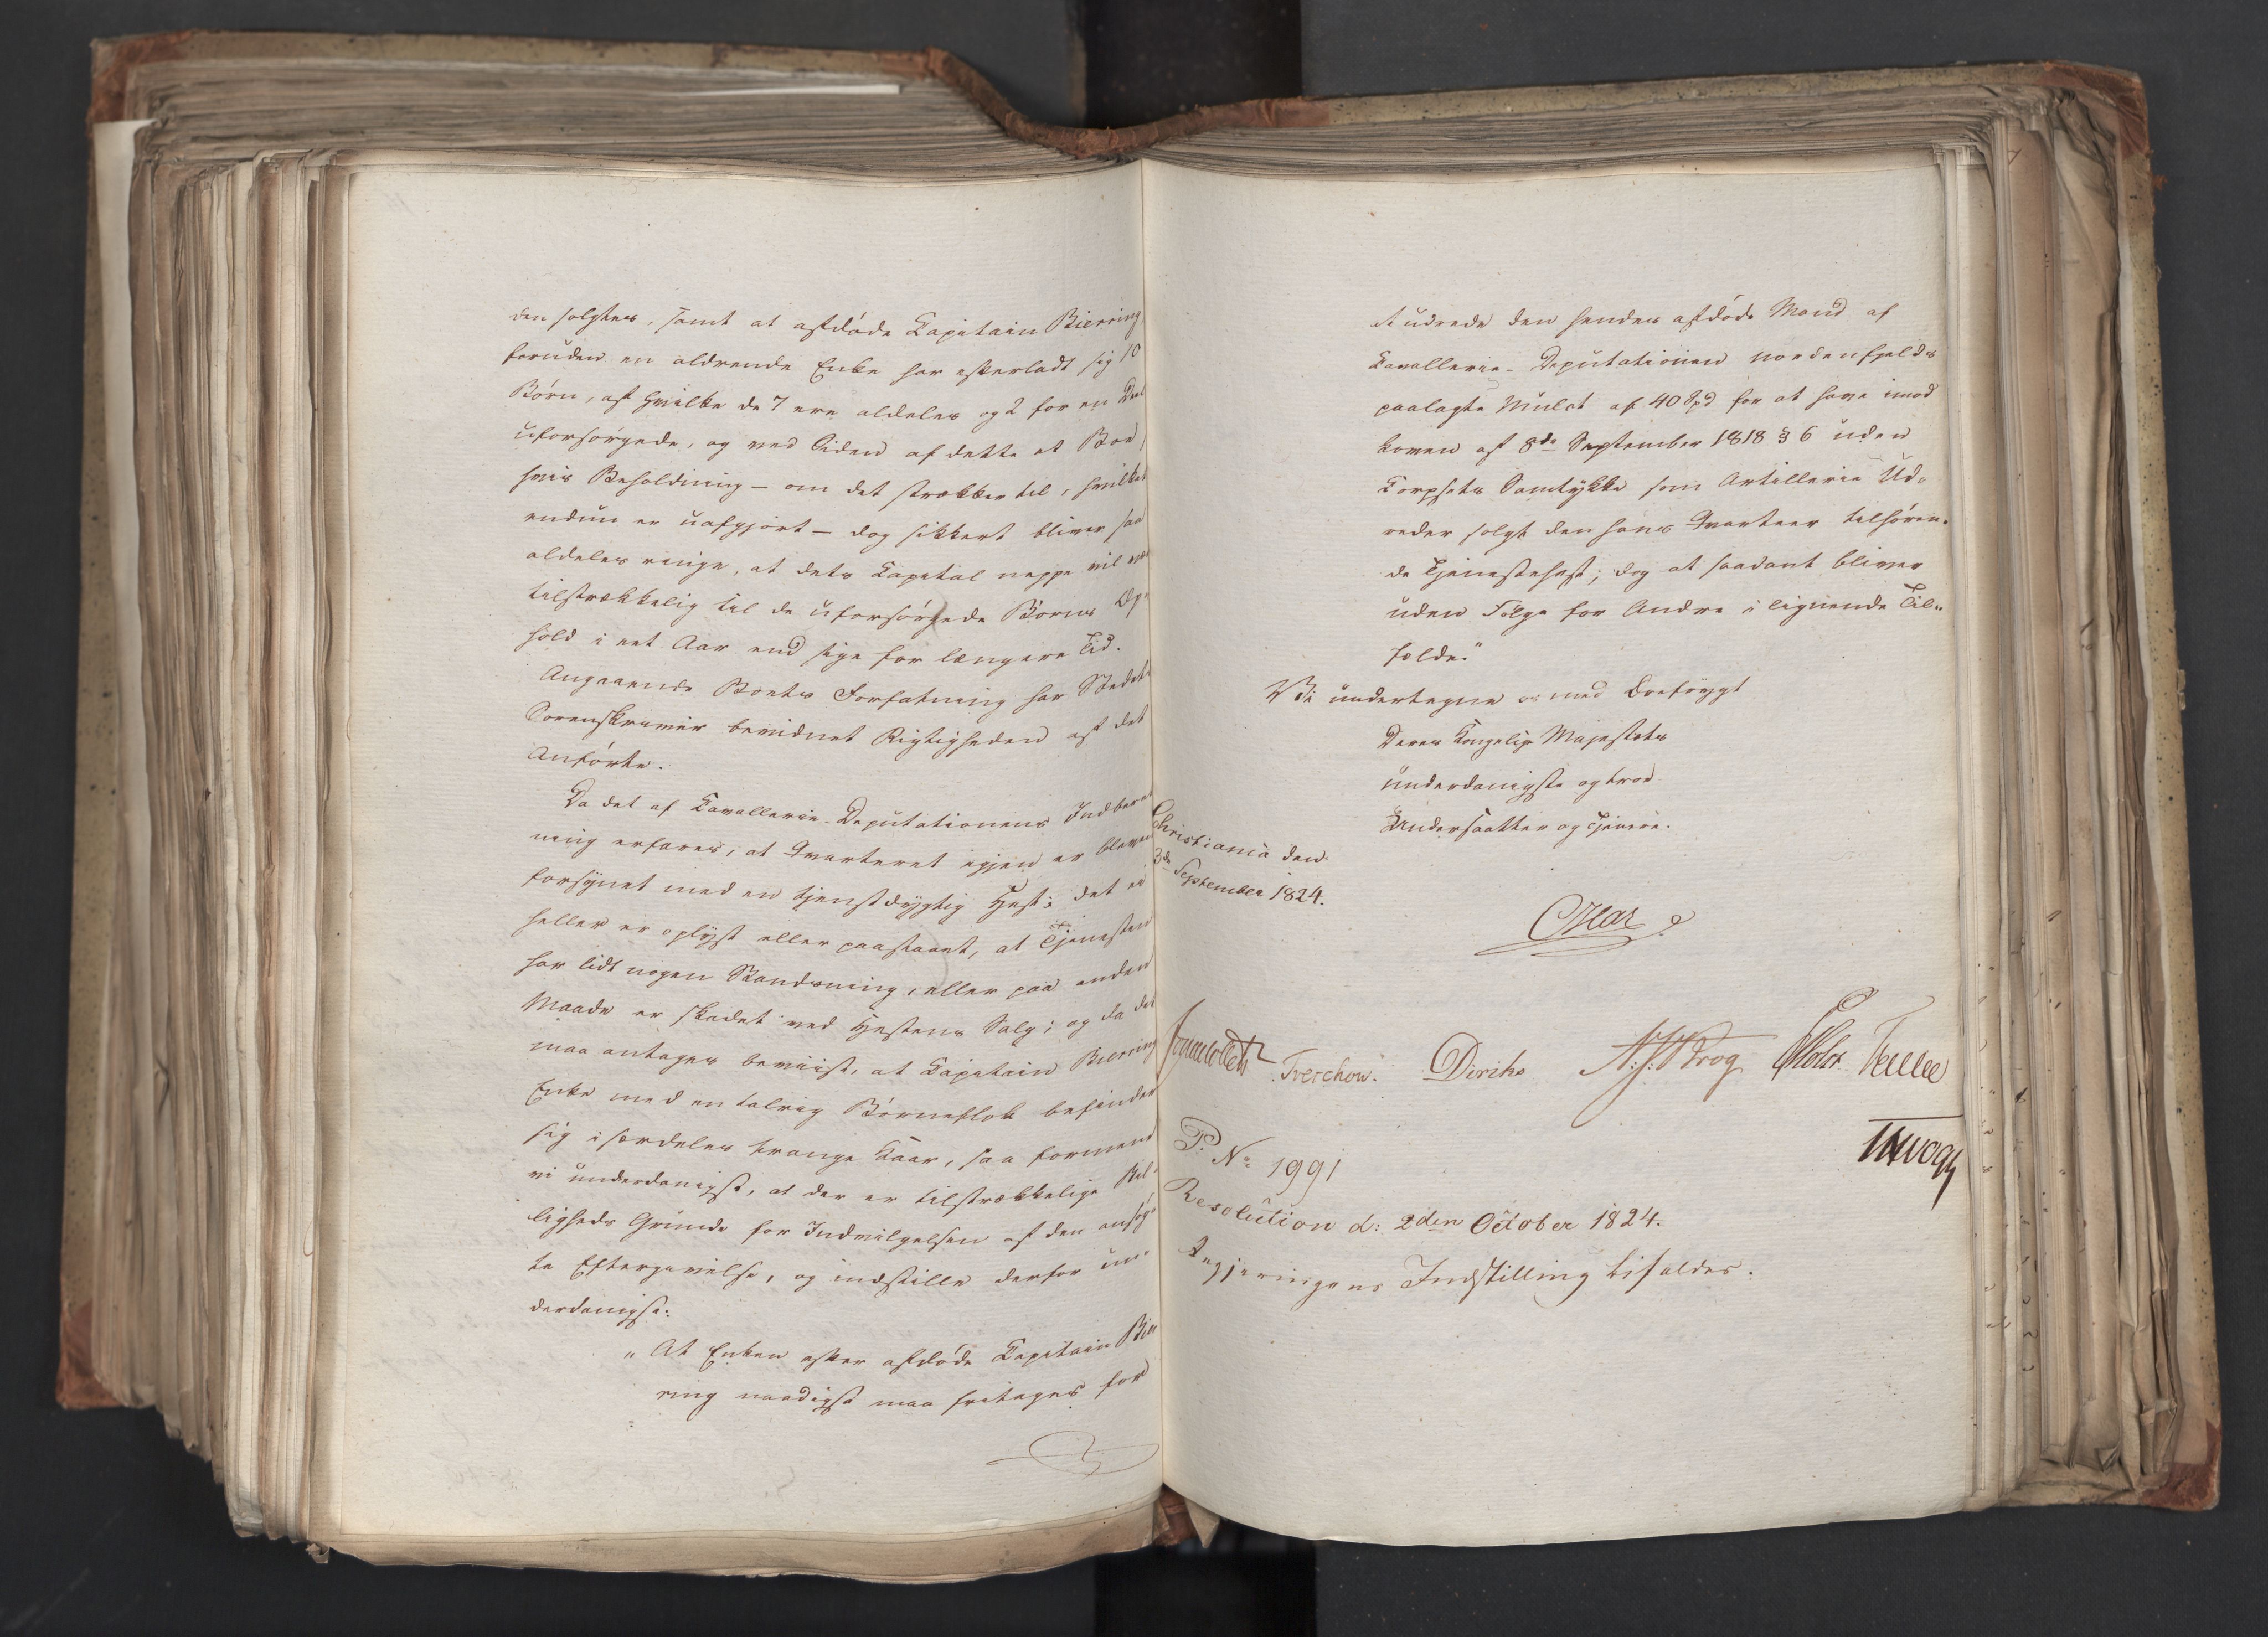 den solgtes, samt at afdøde Capitain Bierring
foruden en aldrende Enke har efterladt sig 10
Børn, af hvilke de 7 ere aldeles og 2 for en Deel
uforsørgede, og ved Siden af dette et Boe,
hvis Beholdning – om det strækker til, hvilket
endnu er uafgjort – dog sikkert bliver saa
aldeles ringe, at dets Capital neppe vil være
tilstrækkelig til de uforsørgede Børns Op-
hold i eet Aar end sige for længere Tid.
Angaaende Boets Forfatning har Stedets
Sorenskriver bevidnet Rigtigheden af det
Anførte.
Da det af Cavallerie-Deputationens Indberet
ning erfares, at Qvarteret igjen er bleven
forsynet med en tjenstdygtig Hest; det ei
heller er oplyst eller paastaaet, at Tjenesten
har lidt nogen Standsning, eller paa anden
Maade er skadet ved Hestens Salg; og da det
maa antages beviist, at Capitain Bierring
Enke med en talrig Børneflok befinder
sig i særdeles trange Kaar, saa formene
vi underdanigst, at der er tilstrækkelige Bil-
ligheds Grunde for Indvilgelsen af den ansøg-
te Eftergivelse, og indstille derfor un-
derdanigst:
"At Enken efter afdøde Capitain Bier
ring naadigst maa fritages for
at udrede den hendes afdøde Mand af
Cavallerie-Deputationen nordenfjelds
paalagte Mulct af 40 Spd for at have imod
Loven af 8de September 1818 § 6 uden
Corpsets Samtykke som Artillerie Ud-
reder solgt den hans Qvarteer tilhøren-
de Tjenestehest; dog at saadant bliver
uden Følge for Andre i lignende Til-
fælde."
Vi undertegne os med Ærefrygt
Deres Kongelige Majestæts
underdanigste og troe
Undersaatter og Tjenere.
Christiania den
3de September 1824.
Jonas Collett Treschow. Diriks N. J. Krog
P: No 1991
Resolution d: 2den October 1824.
Regjeringens Indstilling bifaldes.